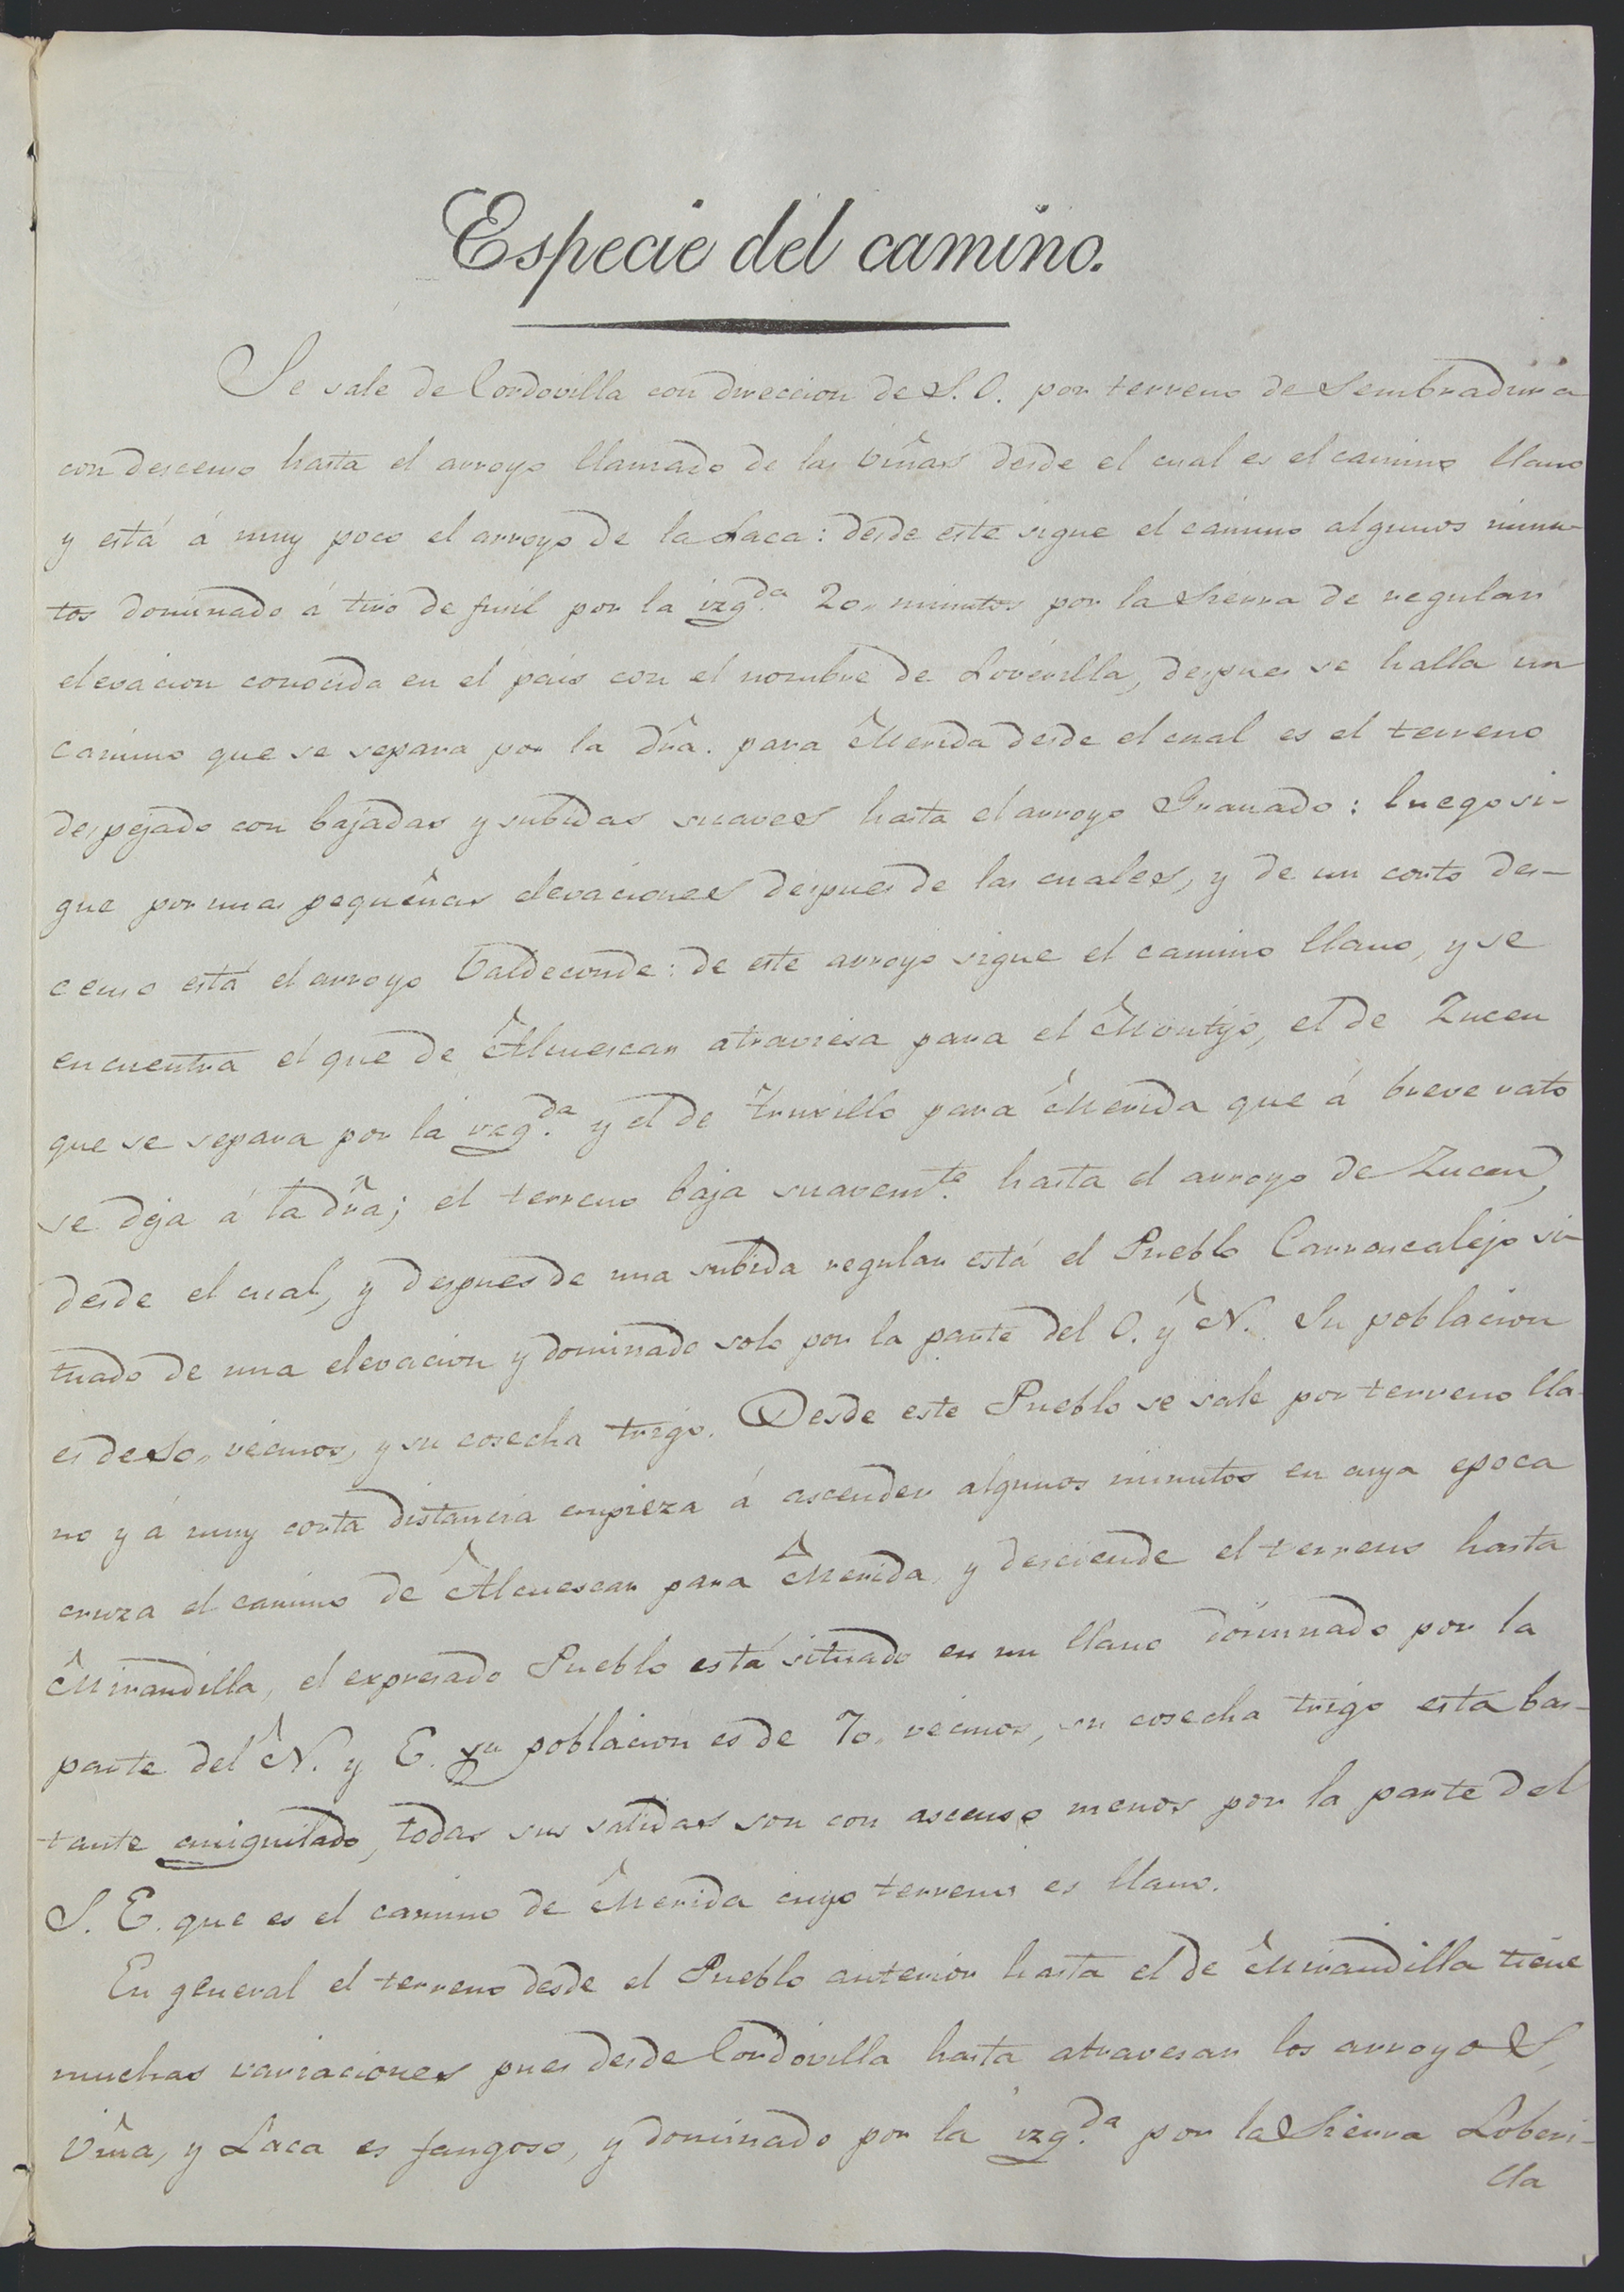 Especie del camino.
Se sale de Cordovilla con direccion de S. O. por terreno de Sembradura
con descenso hasta el arroyo llamado de las Viñas desde el cual es el camino llano
y está á muy poco el arroyo de la Laca: desde este sigue el camino algunos minu-
tos dominado á tiro de fusil por la izqda. 20,, minutos por la Sierra de regular
elevacion conocida en el pais con el nombre de Loverilla, despues se halla un
camino que se separa por la dra. para Merida desde el cual es el terreno
despejado con bajadas y subidas suaves hasta el arroyo Granado: luego si-
gue por unas pequeñas elevaciones despues de las cuales, y de un corto des-
censo está el arroyo Valdeconde: de este arroyo sigue el camino llano, y se
encuentra el que de Alcuescar atraviesa para el Montijo, el de Zucen
que se separa por la izqda. y el de Truxillo para Merida que á breve rato
se deja á la dra; el terreno baja suavemte. hasta el arroyo de Zucen,
desde el cual, y despues de una subida regular está el Pueblo Carrascalejo si-
tuado de una elevacion y dominado solo por la parte del O. y N. Su poblacion
es de 50,, vecinos, y su cosecha trigo. Desde este Pueblo se sale por terreno lla-
no y á muy corta distancia empieza á ascender algunos minutos en cuya epoca
cruza el camino de Alcuescar para Merida, y desciende el terreno hasta
Mirandilla, el expresado Pueblo está situado en un llano dominado por la
parte del N. y E. su poblacion es de 70,, vecinos, su cosecha trigo esta bas-
tante aniquilado, todas sus salidas son con ascenso menos por la parte del
S. E. que es el camino de Merida cuyo terreno es llano.
En general el terreno desde el Pueblo anterior hasta el de Mirandilla tiene
muchas variaciones pues desde Cordovilla hasta atravesar los arroyos,
Viña, y Laca es fangoso, y dominado por la izqda. por la Sierra Loberi-
lla